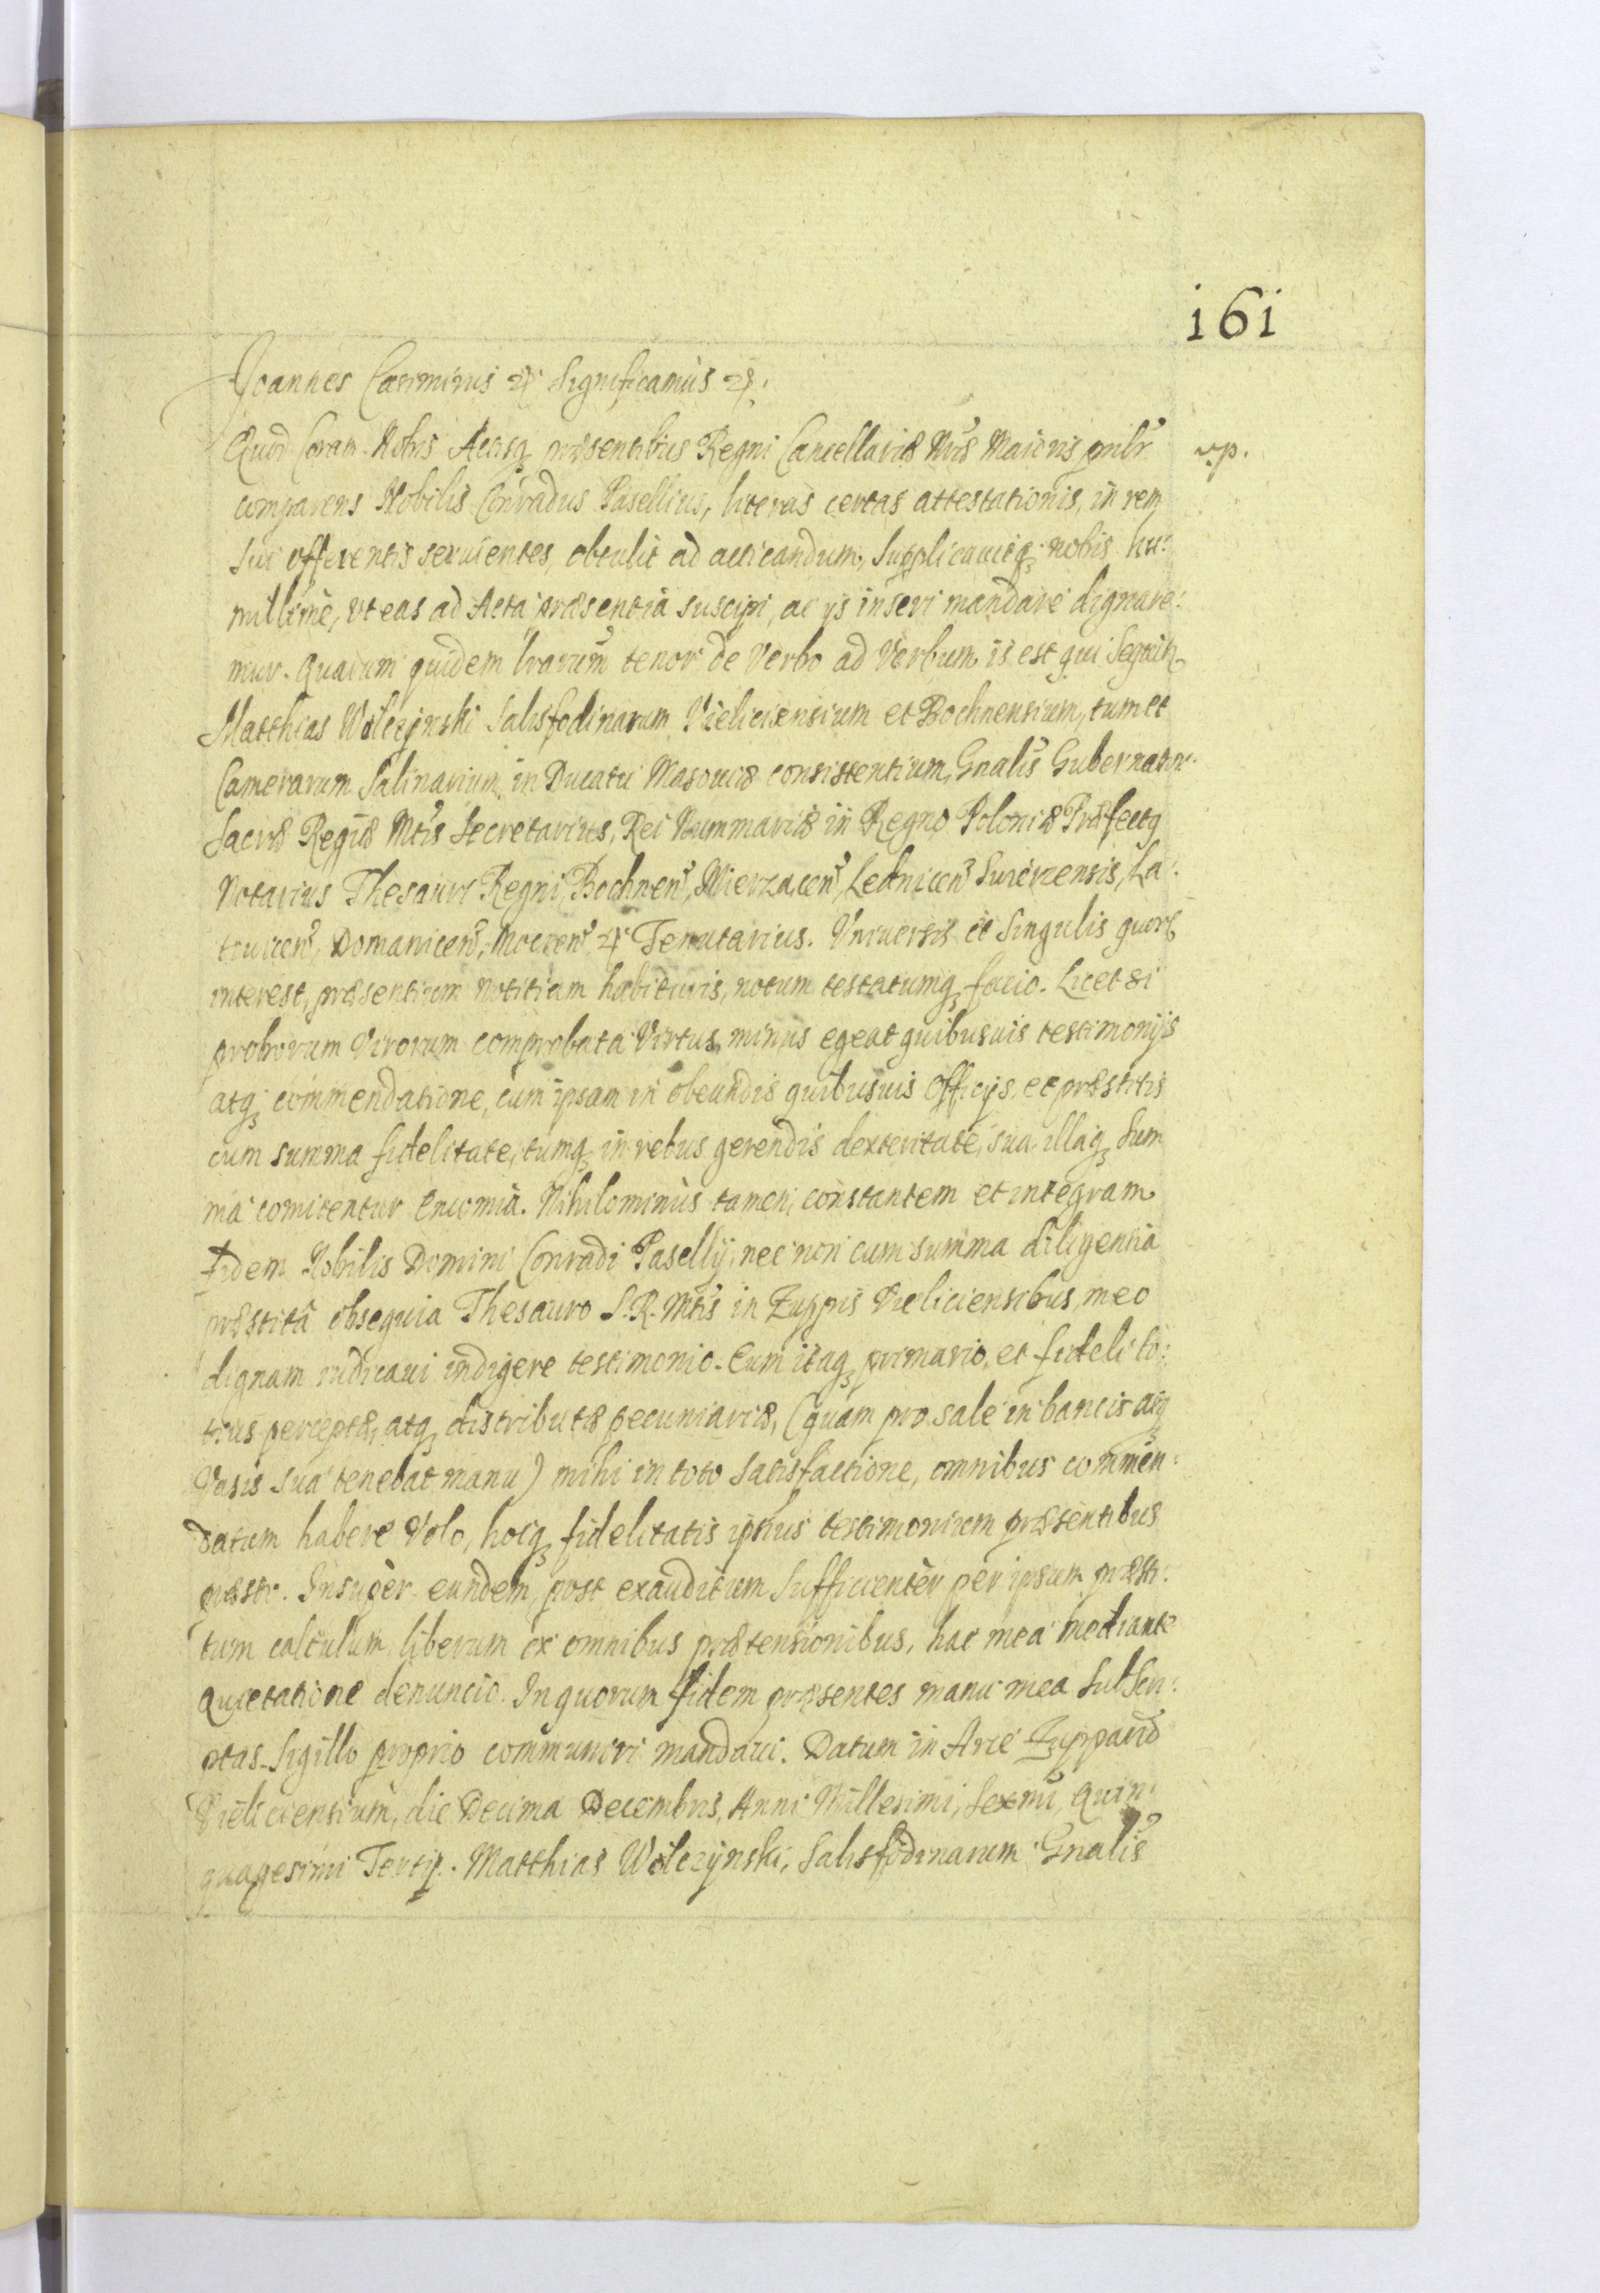 161
Joannes Casimirus etc Significamus etc.
Quod Coram Nobis Actisq præsentibus Regni Cancellariæ Nrs Maioris psnlr
vp.
comparens Nobilis Conradus Pasellius, literas certas attestationis, in rem
sui offerentis seruientes, obtulit ad acticandum, Supplicauitq nobis hu:
millime, vt eas ad Acta præsentia suscipi, ac ijs inseri mandare dignare:
mur. Quarum quidem lrarum tenor de Verbo ad Verbum is est qui Sequitr
Matthias Wolczynski Salisfodinarum Vieliciensium et Bochnensium, tum et
Camerarum Salinarium in Ducatu Masouiæ consistentium, Gnalis Gubernator
Sacræ Regiæ Mtis Secretarius, Rei Nummariæ in Regno Poloniæ Præfectq
Notarius Thesauri Regni, Bochnen, Mierzacen, Lednicen Swierzensis, La:
touicen, Domanicen, Mocren etc Tenutarius. Vniuersis et Singulis quorū
interest, præsentium notitiam habituris, notum testatumq facio. Licet si
proborum Virorum comprobata Virtus, minus egeat quibusuis testimonijs
atq commendatione, cum ipsam in obeundis quibusuis Officijs, et præstitis
cum summa fidelitate, tumq in rebus gerendis dexteritate, sua illaq Sum
ma comitentur Encomia. Nihilominus tamen constantem et integram
Fidem Nobilis Domini Conradi Paselly, nec non cum summa diligentia
præstita obsequia Thesauro S. R. Mtis in Zuppis Vieliciensibus, meo
dignam iudicaui indigere testimonio. Eum itaq primario, et fideli to:
tius perceptæ, atq distributæ pecuniariæ, (quam pro sale in bancis atq
Vasis sua tenebat manu) mihi in toto Satisfactione, omnibus commen:
datum habere Volo, hocq fidelitatis ipsius testimonium præsentibus
præsto. Insuper eundem, post exauditum Sufficienter per ipsum præsti:
tum calculum, liberum ex omnibus prætensionibus, hac mea mediante
Quietatione denuncio. In quorum fidem præsentes manu mea Subscri:
ptas Sigillo proprio communiri mandaui. Datum in Arce Zuppariæ
Vieliciensium, die Decima Decembris, Anni Millesimi, Sexmi, Quin:
quagesimi Tertij. Matthias Wolczynski, Salisfodinarum Gnalis